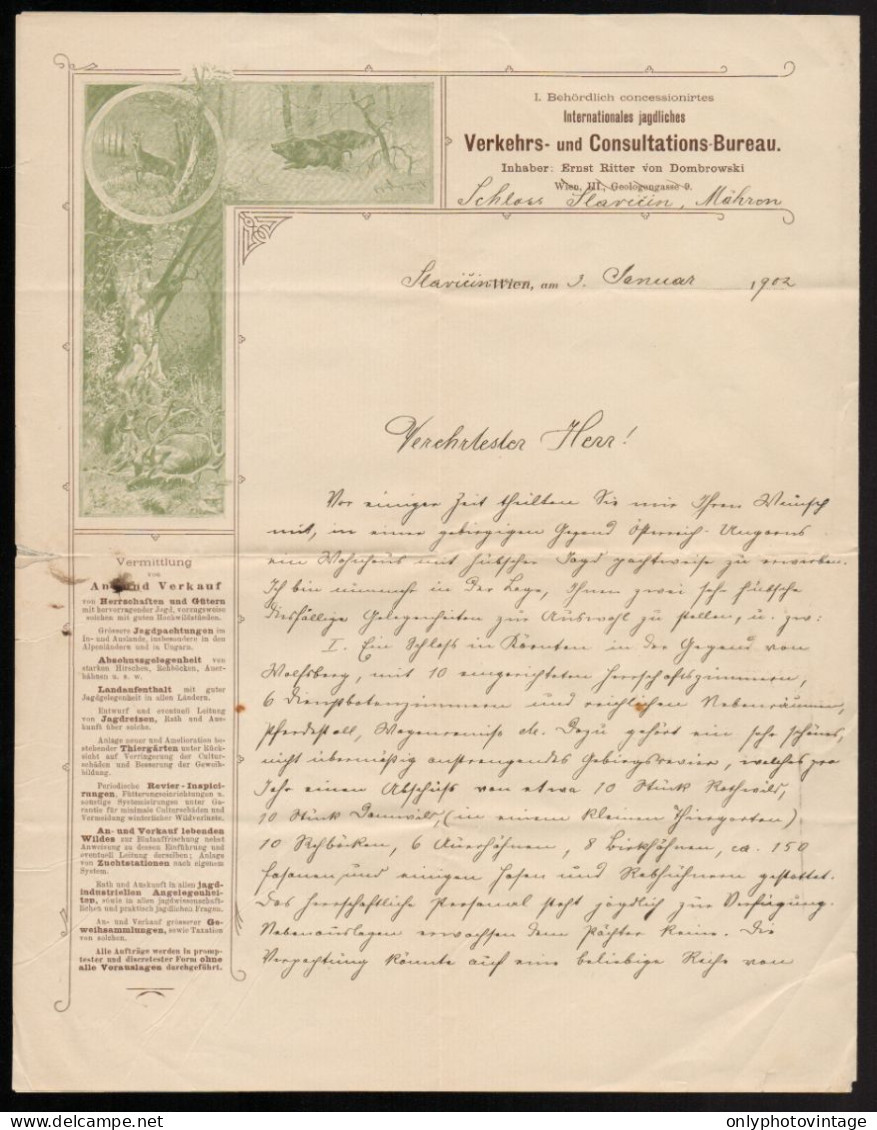 I. Behördlich concessionirtes
Internationales jagdliches
Verkehrs- und Consultations-Bureau.
Inhaber: Ernst Ritter von Dombrowski
Wien, III., Geologengasse 9.
Schloss Slavičin, Mähren
Slavičin Wien, am 3. Januar 1902
Verehrtester Herr!
Vor einiger Zeit theilten Sie mir Ihren Wunsch
mit, in einer gebirgigen Gegend Österreich-Ungarns
ein Wohnhaus mit hübscher Jagd pachtweise zu erwerben.
Ich bin nunmehr in der Lage, Ihnen zwei sehr hübsche
diesfällige Gelegenheiten zur Auswahl zu stellen, u. zw:
I. Ein Schloß in Kärnten in der Gegend von
Wolfsberg, mit 10 eingerichteten Herrschaftszimmern,
6 Dienstbotenzimmern und reichlichen Nebenräumen,
Pferdestall, Wagenremise etc. Dazu gehört ein sehr schönes,
nicht übermäßig anstrengendes Gebirgsrevier, welches pro
Jahr einen Abschuß von etwa 10 Stück Rothwild,
10 Stück Damwild (in einem kleinen Thiergarten)
10 Rehböcken, 6 Auerhähnen, 8 Birkhähnen, ca. 150
Fasanen und einigen Hasen und Rebhühnern gestattet.
Das herrschaftliche Personal steht jagdlich zur Verfügung.
Nebenauslagen erwachsen dem Pächter keine. Die
Verpachtung könnte auf eine beliebige Reihe von
Vermittlung
von
An- und Verkauf
von Herrschaften und Gütern
mit hervorragender Jagd, vorzugsweise
solchen mit guten Hochwildständen.
Grössere Jagdpachtungen im
In- und Auslande, insbesondere in den
Alpenländern und in Ungarn.
Abschussgelegenheit von
starken Hirschen, Rehböcken, Auer-
hähnen u. s. w.
Landaufenthalt mit guter
Jagdgelegenheit in allen Ländern.
Entwurf und eventuell Leitung
von Jagdreisen, Rath und Aus-
kunft über solche.
Anlage neuer und Amelioration be-
stehender Thiergärten unter Rück-
sicht auf Verringerung der Cultur-
schäden und Besserung der Geweih-
bildung.
Periodische Revier-Inspici-
rungen, Fütterungseinrichtungen u.
sonstige Systemisirungen unter Ga-
rantie für minimale Culturschäden und
Vermeidung winterlicher Wildverluste.
An- und Verkauf lebenden
Wildes zur Blutauffrischung nebst
Anweisung zu dessen Einführung und
eventuell Leitung derselben; Anlage
von Zuchtstationen nach eigenem
System.
Rath und Auskunft in allen jagd-
industriellen Angelegenhei-
ten, sowie in allen jagdwissenschaft-
lichen und praktisch jagdlichen Fragen.
An- und Verkauf grösserer Ge-
weihsammlungen, sowie Taxation
von solchen.
Alle Aufträge werden in promp-
tester und discretester Form ohne
alle Vorauslagen durchgeführt.
delcampe.net
onlyphotovintage